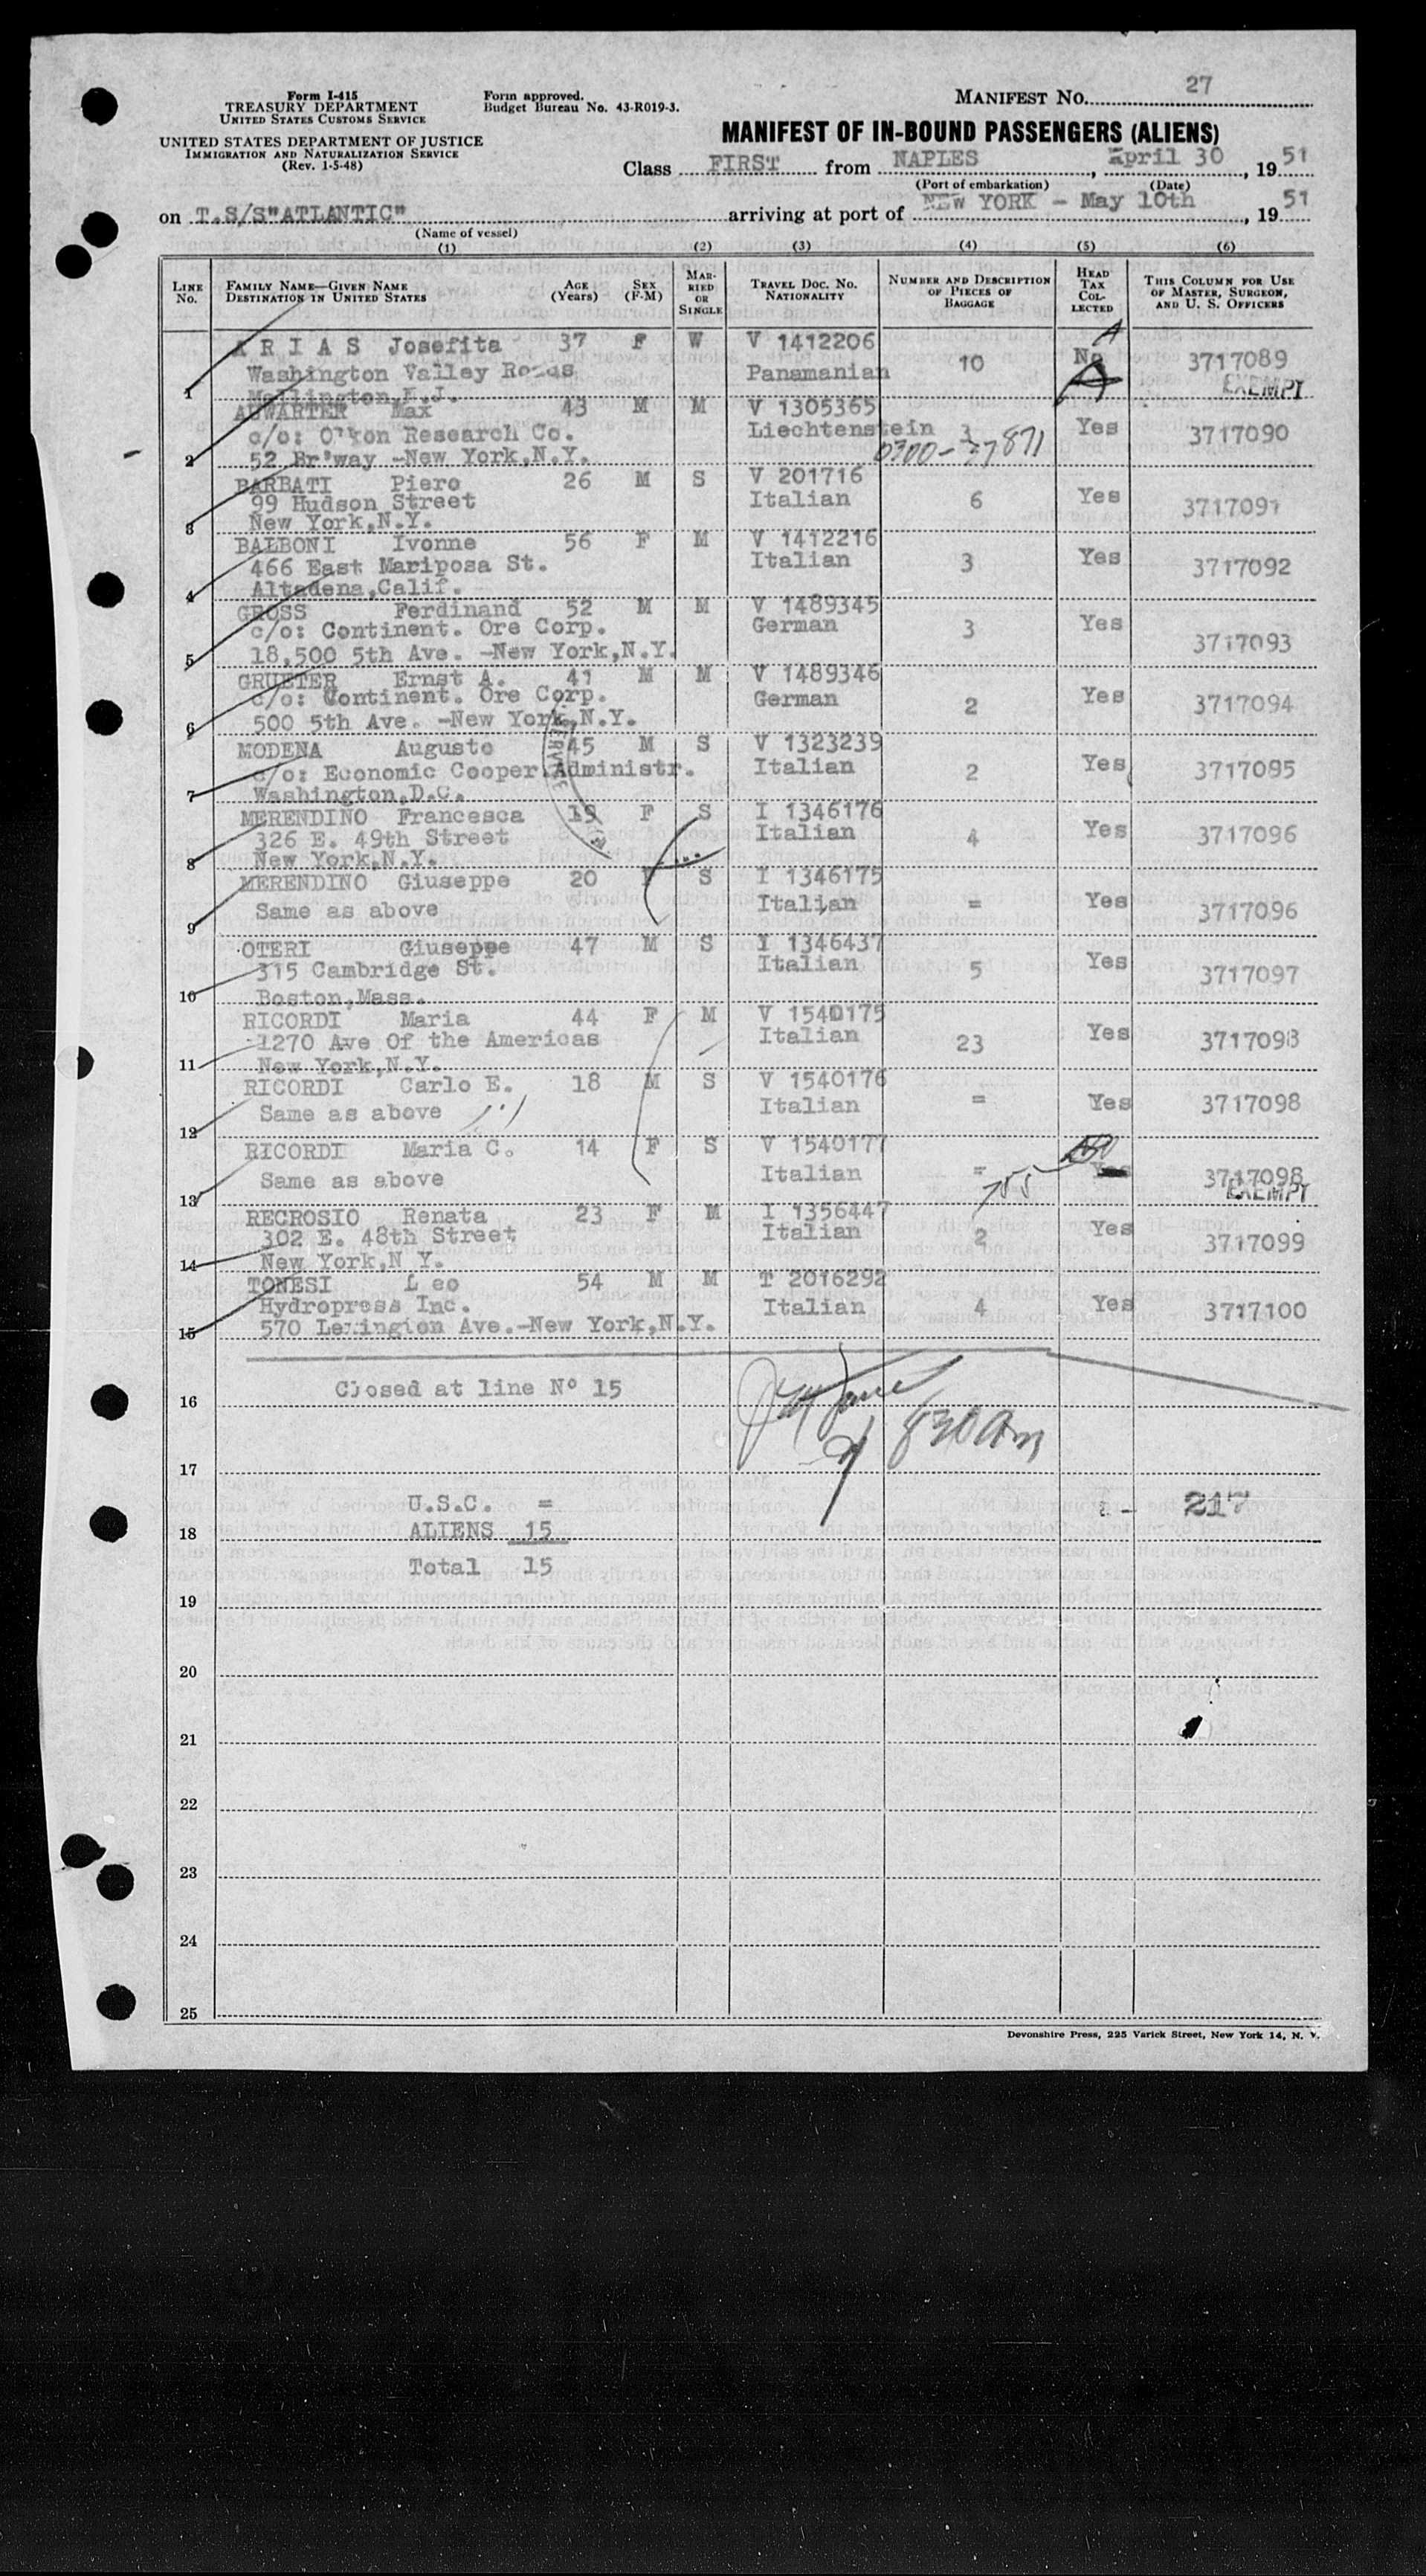 Form I-415
TREASURY DEPARTMENT
UNITED STATES CUSTOMS SERVICE
UNITED STATES DEPARTMENT OF JUSTICE
IMMIGRATION AND NATURALIZATION SERVICE
(Rev. 1-5-48)
Form approved.
Budget Bureau No. 43-R019-3.
MANIFEST No. 27
MANIFEST OF IN-BOUND PASSENGERS (ALIENS)
Class FIRST from NAPLES, April 30, 1951
(Port of embarkation) (Date)
on T.S/S"ATLANTIC" arriving at port of NEW YORK - May 10th, 1951
(Name of vessel)
(1) (2) (3) (4) (5) (6)
LINE No. FAMILY NAME—GIVEN NAME DESTINATION IN UNITED STATES AGE (Years) SEX (F-M) MARRIED OR SINGLE TRAVEL DOC. NO. NATIONALITY NUMBER AND DESCRIPTION OF PIECES OF BAGGAGE HEAD TAX COLLECTED THIS COLUMN FOR USE OF MASTER, SURGEON, AND U. S. OFFICERS
A R I A S Josefita 37 F W V 1412206
Washington Valley Panamanian 10 No 3717089
1 EXEMPT
Max 43 M M V 1305365
c/o: Research Co. Liechtenstein 3 Yes 3717090
2 52 Br'way -New York,N.Y. 0300-37871
BARBATI Piero 26 M S V 201716
99 Hudson Street Italian 6 Yes 3717091
3 New York,N.Y.
BALBONI Ivonne 56 F M V 1412216
466 East Mariposa St. Italian 3 Yes 3717092
4 Altadena,Calif.
GROSS Ferdinand 52 M M V 1489345
c/o: Continent. Ore Corp. German 3 Yes 3717093
5 18,500 5th Ave. -New York,N.Y.
GRUETER Ernst A. 41 M M V 1489346
c/o: Continent. Ore Corp. German 2 Yes 3717094
6 500 5th Ave. -New York,N.Y.
MODENA Augusto 45 M S V 1323239
c/o: Economic Cooper.Administr. Italian 2 Yes 3717095
7 Washington,D.C.
MERENDINO Francesca 19 F S I 1346176
326 E. 49th Street Italian 4 Yes 3717096
8 New York,N.Y.
MERENDINO Giuseppe 20 S I 1346175
Same as above Italian = Yes 3717096
9
OTERI Giuseppe 47 M S I 1346437
315 Cambridge St. Italian 5 Yes 3717097
10 Boston,Mass.
RICORDI Maria 44 F M V 1540175
1270 Ave Of the Americas Italian 23 Yes 3717098
11 New York,N.Y.
RICORDI Carlo E. 18 M S V 1540176
Same as above Italian = Yes 3717098
12
RICORDI Maria C. 14 F S V 1540177
Same as above Italian = 3717098
13 EXEMPT
RECROSIO Renata 23 F M I 1356447
302 E. 48th Street Italian 2 Yes 3717099
14 New York,N Y.
TONESI Leo 54 M M T 2016292
Hydropress Inc. Italian 4 Yes 3717100
15 570 Lexington Ave.-New York,N.Y.
Closed at line Nº 15
16
830am
17
U.S.C. = 217
18 ALIENS 15
Total 15
19
20
21
22
23
24
25
Devonshire Press, 225 Varick Street, New York 14, N. Y.